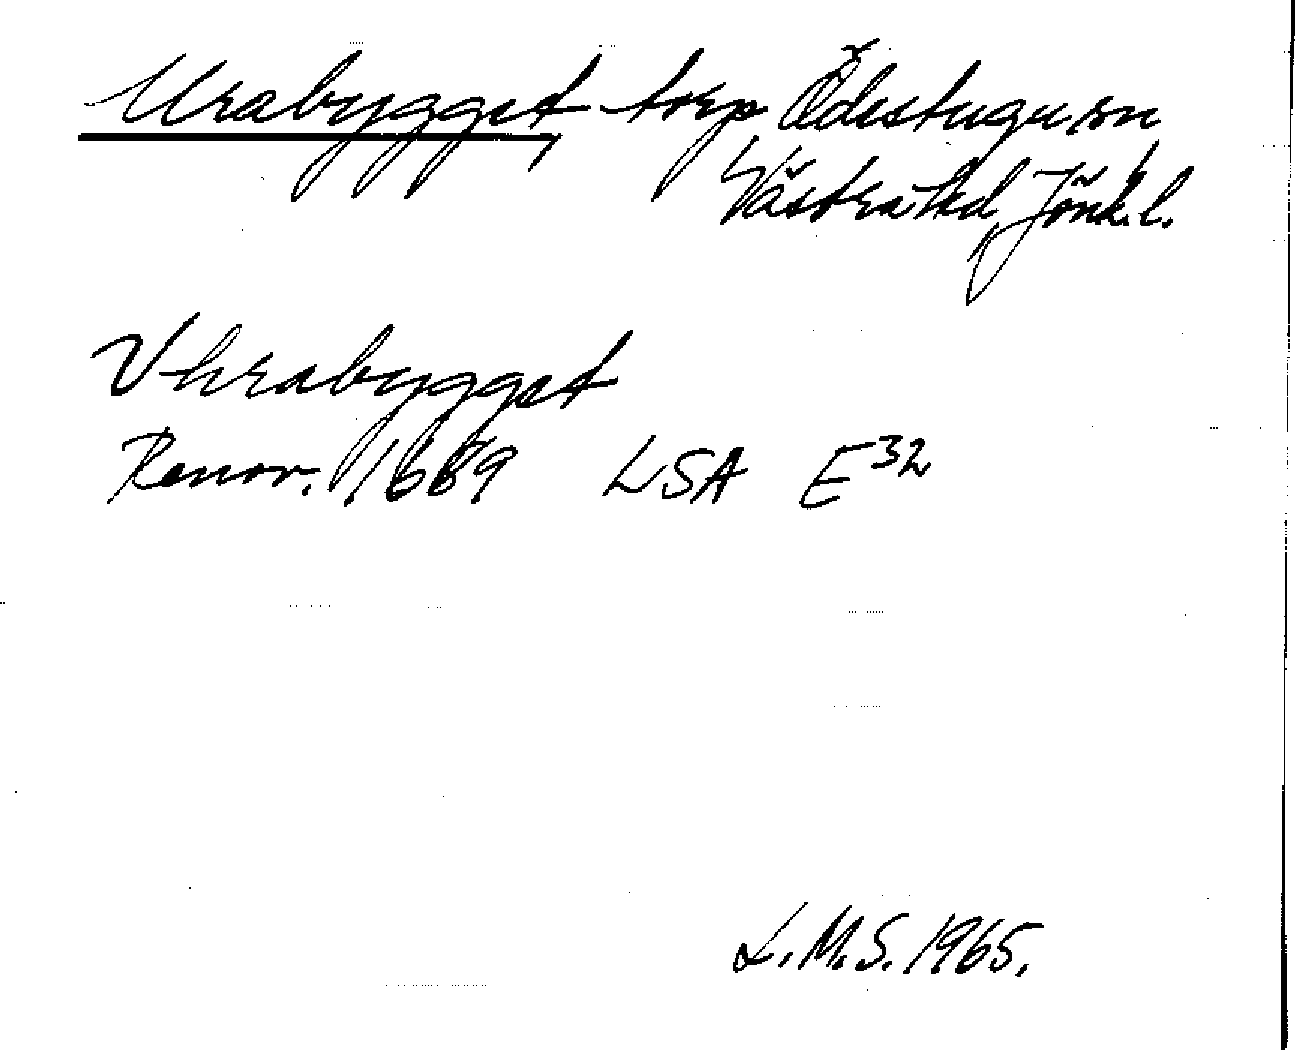 Urabygget, torp, Ödestugu sn
Västra hd, Jönk. l.
Vhrabygget
Renov. 1689 LSA E32
L.M.S. 1965.